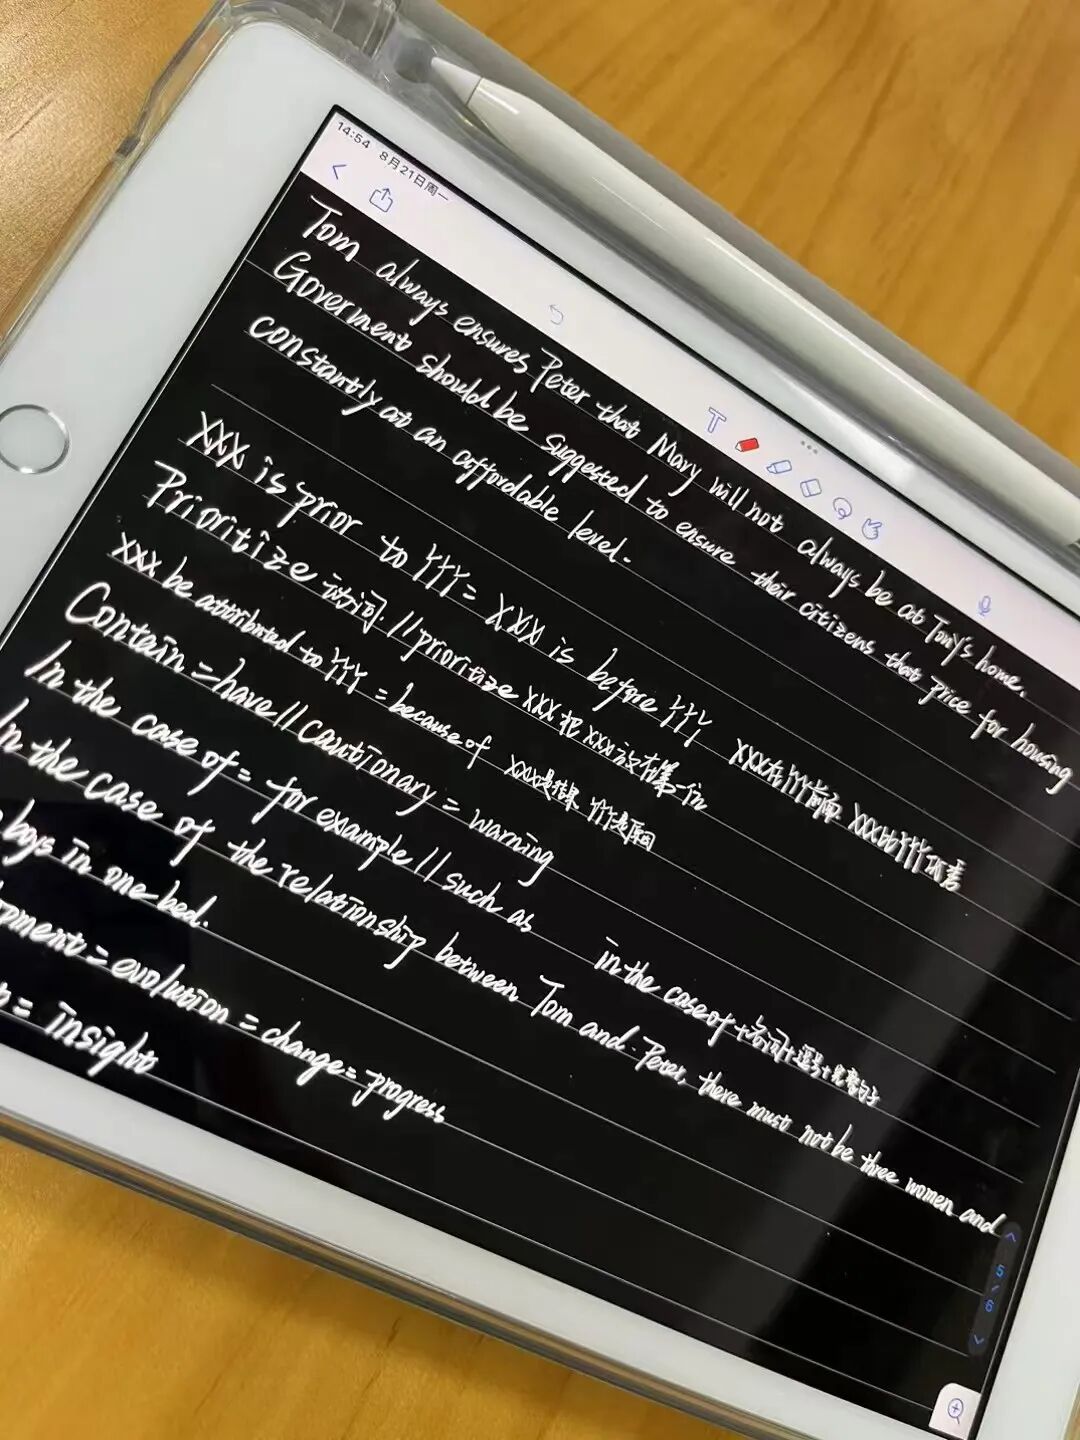 14:54 8月21日周一
Tom always ensures Peter that Mary will not always be at Tony's home.
Goverment should be suggested to ensure their citizens that price for housing
constantly at an affordable level.
XXX is prior to YYY = XXX is before YYY XXX在YYY前面 XXX比YYY优秀
Prioritize 动词 // prioritize XXX 把XXX放在第一位
XXX be attributed to YYY = because of XXX是结果 YYY是原因
Contain = have // Cautionary = warning
In the case of = for example // such as in the case of + 名词 + 逗号 + 完整句子
In the case of the relationship between Tom and Peter, there must not be three women and
boys in one bed.
= evolution = change = progress
= insight
5/6